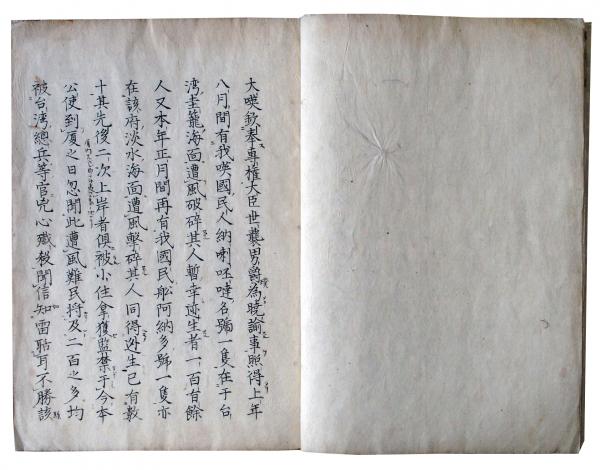 大㖤欽奉專權大臣世襲男爵為曉諭事照得上年
八月間有我㖤國民人納喇呸噠名號一隻在于台
湾圭籠海面遭風破碎其人暫幸迯生者一百有餘
人又本年正月間再有我國民舩阿納多號一隻亦
在該府淡水海面遭風擊碎其人同得迯生已有數
十其先後二次上岸者俱被小住拿獲監禁于今本
公使到厦之日忽聞此遭風難民將及二百之多均
被台湾總兵等官兇心殱殺聞信知雷聒耳不勝該